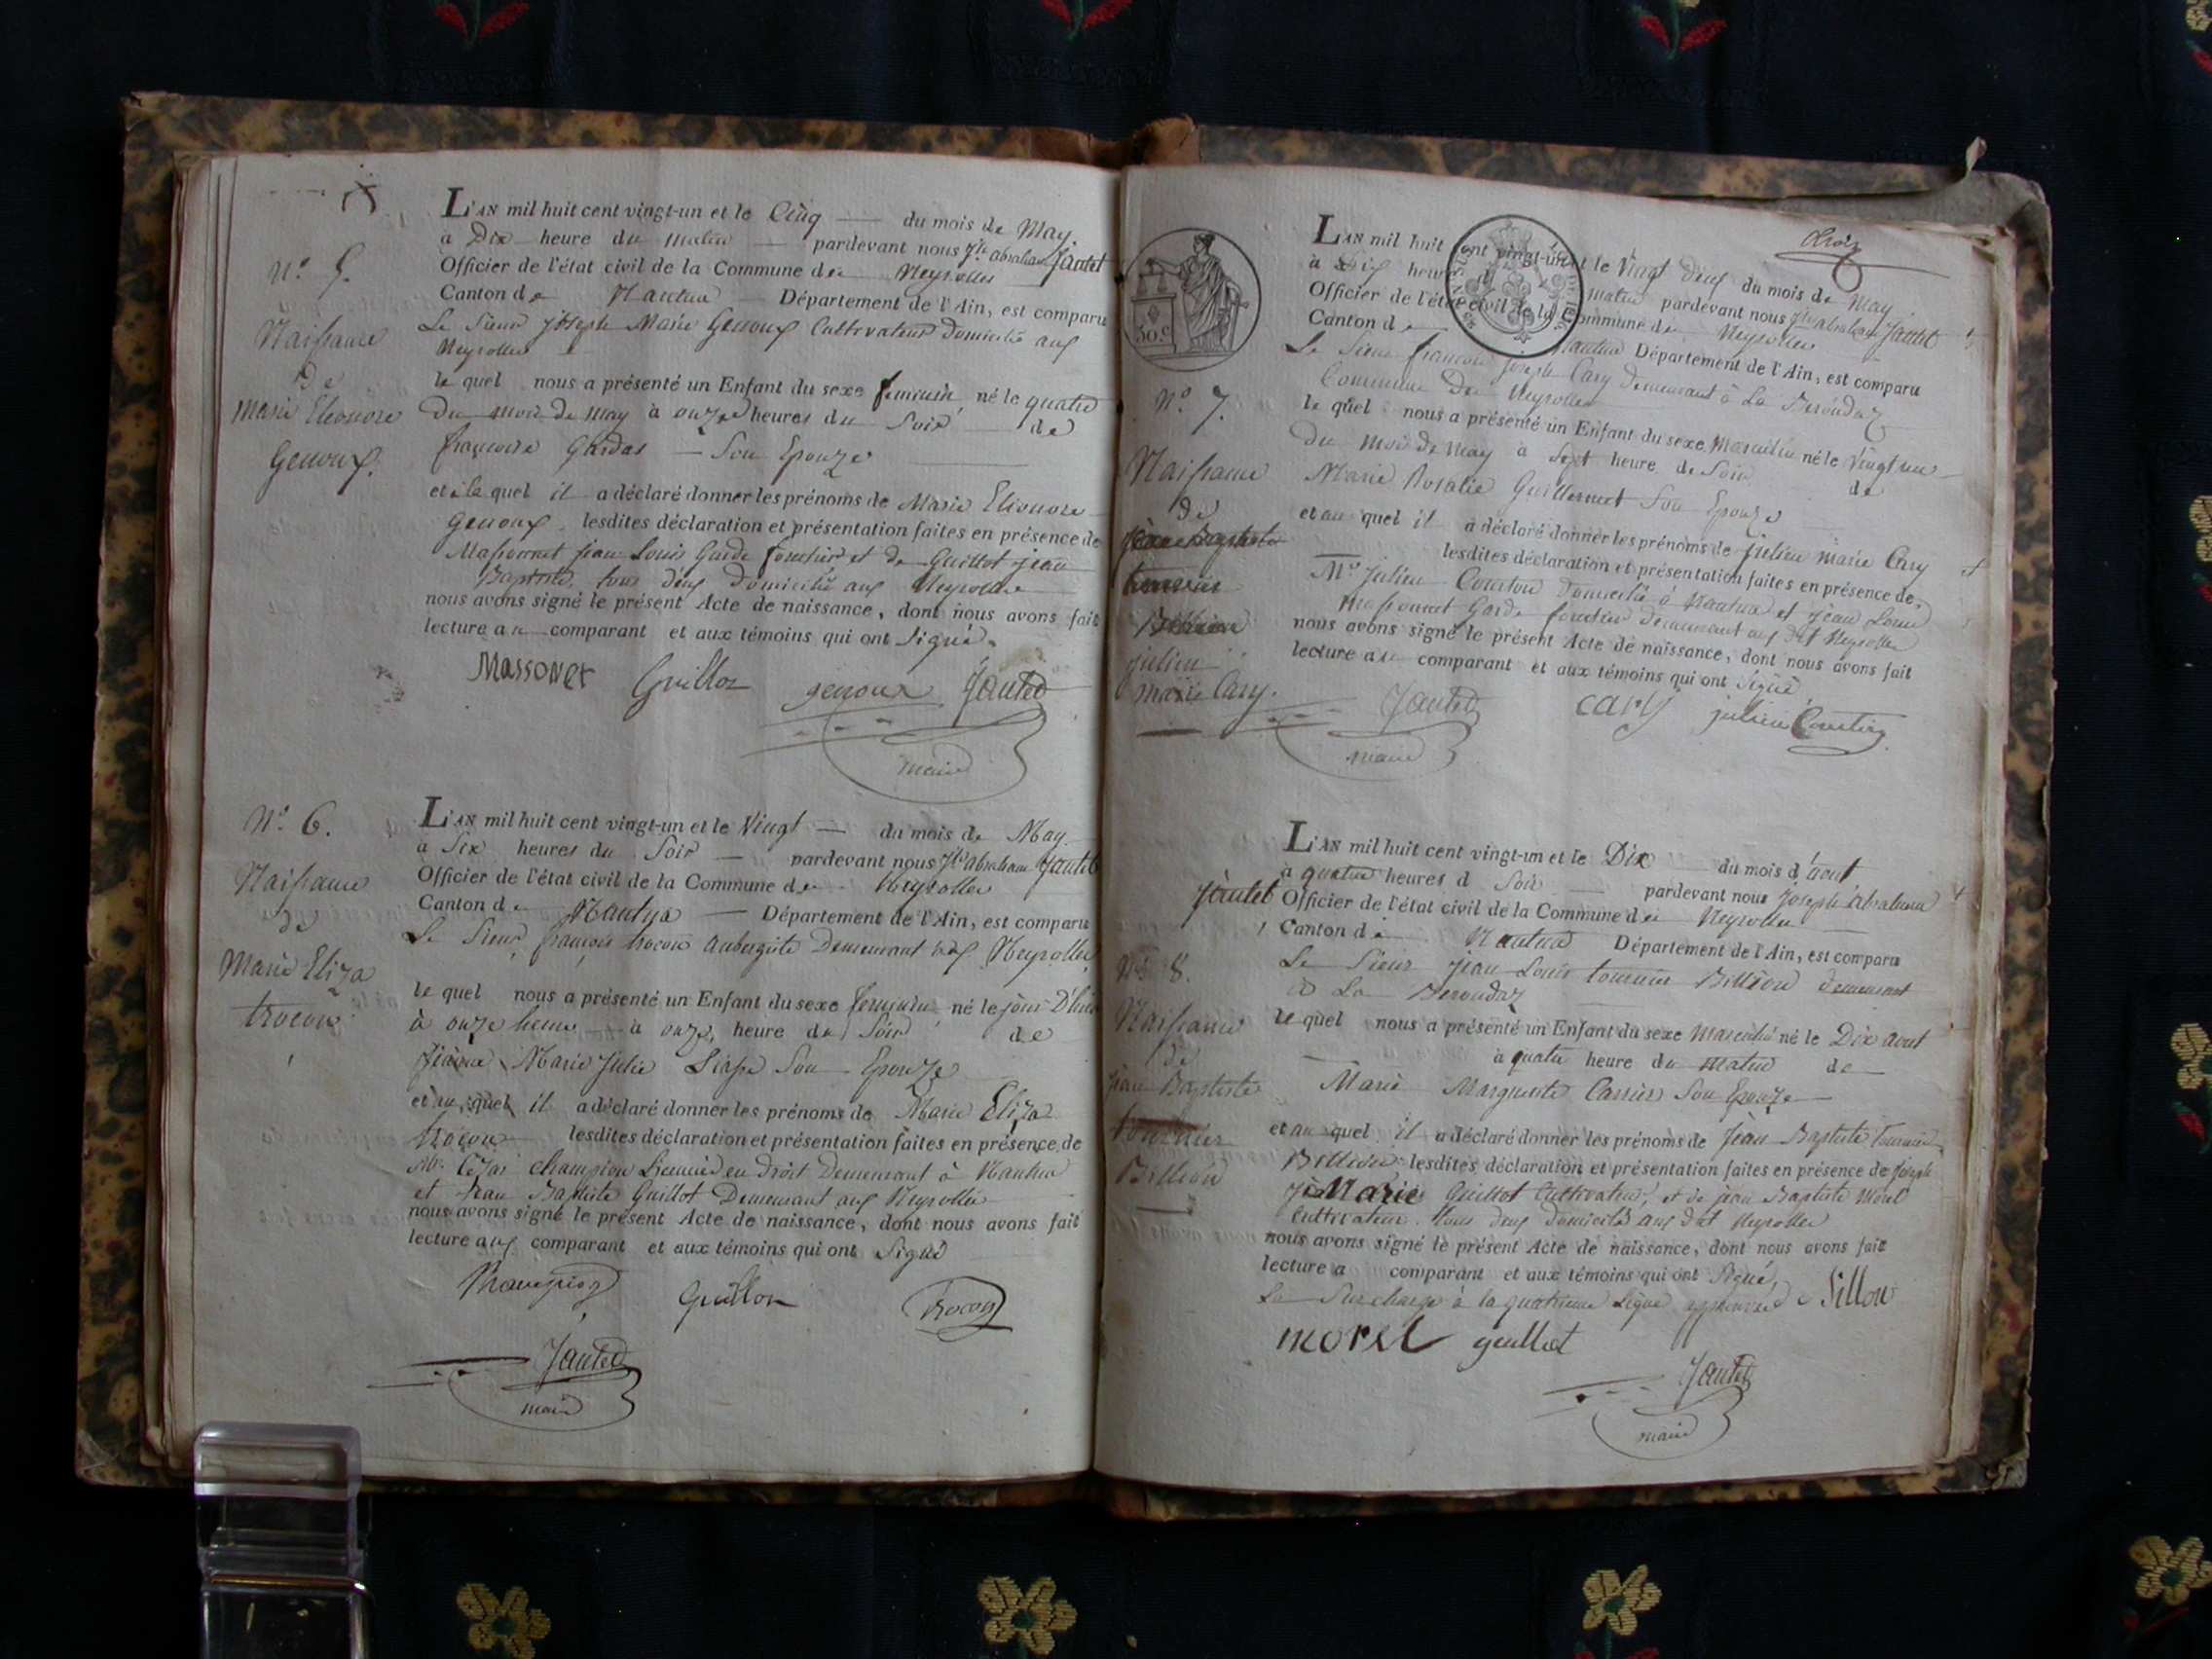 N.° 5.
Naissance
de
Marie Eleonore
Genoux.
L'AN mil huit cent vingt-un et le Cinq du mois de May
a Dix heure du matin pardevant nous Jh abraham Jantet
Officier de l'état civil de la Commune de Neyrolles
Canton de Nantua Département de l'Ain, est comparu
Le Sieur Joseph Marie Genoux Cultivateur Domicilié aux
Neyrolles
le quel nous a présenté un Enfant du sexe feminin né le quatre
du mois de may à onze heures du Soir de
françoise Gardas Son Epouze
et à la quel il a déclaré donner les prénoms de Marie Eleonore
Genoux lesdites déclaration et présentation faites en présence de
Massonnet jean Louis Garde forestier et de Guillot jean
Baptiste, tous deux domicilié aux Neyrolles
nous avons signé le présent Acte de naissance, dont nous avons fait
lecture au comparant et aux témoins qui ont Signé.
Massonet Guillot genoux Jantet
maire
N.° 6.
Naissance
de
Marie Eliza
trocon
L'AN mil huit cent vingt-un et le Vingt du mois de May
à Six heures du Soir pardevant nous Jh abraham Jantet
Officier de l'état civil de la Commune de Neyrolles
Canton de Nantua Département de l'Ain, est comparu
Le Sieur françois trocon aubergiste Demeurant aux Neyrolles
le quel nous a présenté un Enfant du sexe feminin né le jour D'hier
à onze heure à onze heure du Soir de
Marie Julie Son Epouze
et au quel il a déclaré donner les prénoms de Marie Eliza
trocon lesdites déclaration et présentation faites en présence de
Mr. Cézar Champion Licencié en Droit Demeurant à Nantua
et Jean Baptiste Guillot Demeurant aux Neyrolles
nous avons signé le présent Acte de naissance, dont nous avons fait
lecture aux comparant et aux témoins qui ont Signé
Champion Guillot trocon
Jantet
maire
30.c
N.° 7.
Naissance
de
Jean Baptiste
tournier
Billion
julien
marie Cary.
trois
L'AN mil huit cent vingt-un et le Vingt Deux du mois de May
à Dix heures du matin pardevant nous Jh abraham Jantet
Officier de l'état civil de la Commune de Neyrolles
Canton de Nantua Département de l'Ain, est comparu
Le Sieur françois joseph Cary demeurant à La Beroudaz
Commune De Neyrolles
le quel nous a présenté un Enfant du sexe Masculin né le Vingt un
du mois de May à Sept heure de Soir de
Marie Rosalie Guillermet Son Epouze
et au quel il a déclaré donner les prénoms de julien marie Cary
lesdites déclaration et présentation faites en présence de
Mr. Julien Domicilié à Nantua et jean Louis
Massonnet Garde forestier demeurant aux dit Neyrolles
nous avons signé le présent Acte de naissance, dont nous avons fait
lecture au comparant et aux témoins qui ont Signé
Jantet cary julien
maire
N.° 8.
Naissance
de
jean Baptiste
tournier
Billion
L'AN mil huit cent vingt-un et le Dix du mois d'aout
à quatre heures d Soir pardevant nous Joseph abraham
Jantet Officier de l'état civil de la Commune de Neyrolles
Canton de Nantua Département de l'Ain, est comparu
Le Sieur jean Louis tournier Billion demeurant
à La Beroudaz
le quel nous a présenté un Enfant du sexe masculin né le Dix aout
à quatre heure du matin de
Marie Marguerite Carrier Son Epouze
et au quel il a déclaré donner les prénoms de jean Baptiste tournier
Billion lesdites déclaration et présentation faites en présence de joseph
Marie Guillot Cultivateur, et de jean Baptiste Morel
Cultivateur. tous deux domicilié aux dit Neyrolles
nous avons signé le présent Acte de naissance, dont nous avons fait
lecture a comparant et aux témoins qui ont Signé,
La Surcharge à la quatrieme Ligne approuvée
morel guillot
Jantet
maire